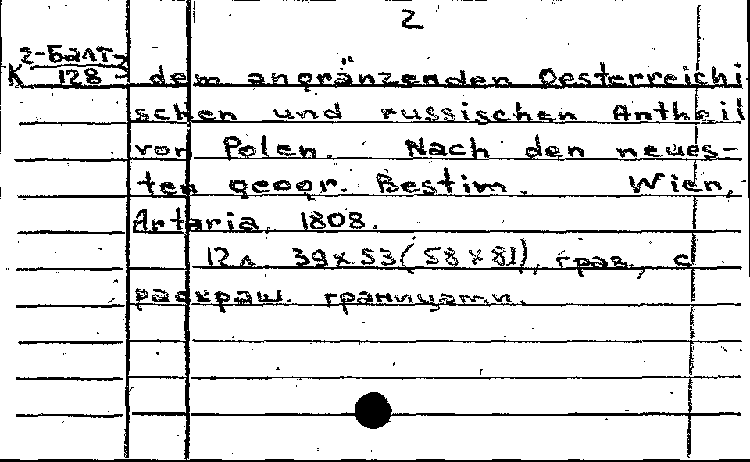 2
К 2-Балт
128
dem angränzenden Oesterreichi
schen und russischen Antheil
von Polen. Nach den neues-
ten geogr. Bestim. Wien,
Artaria, 1808.
12 л. 39 x 53 (58 x 81), грав., с
раскраш. границами.